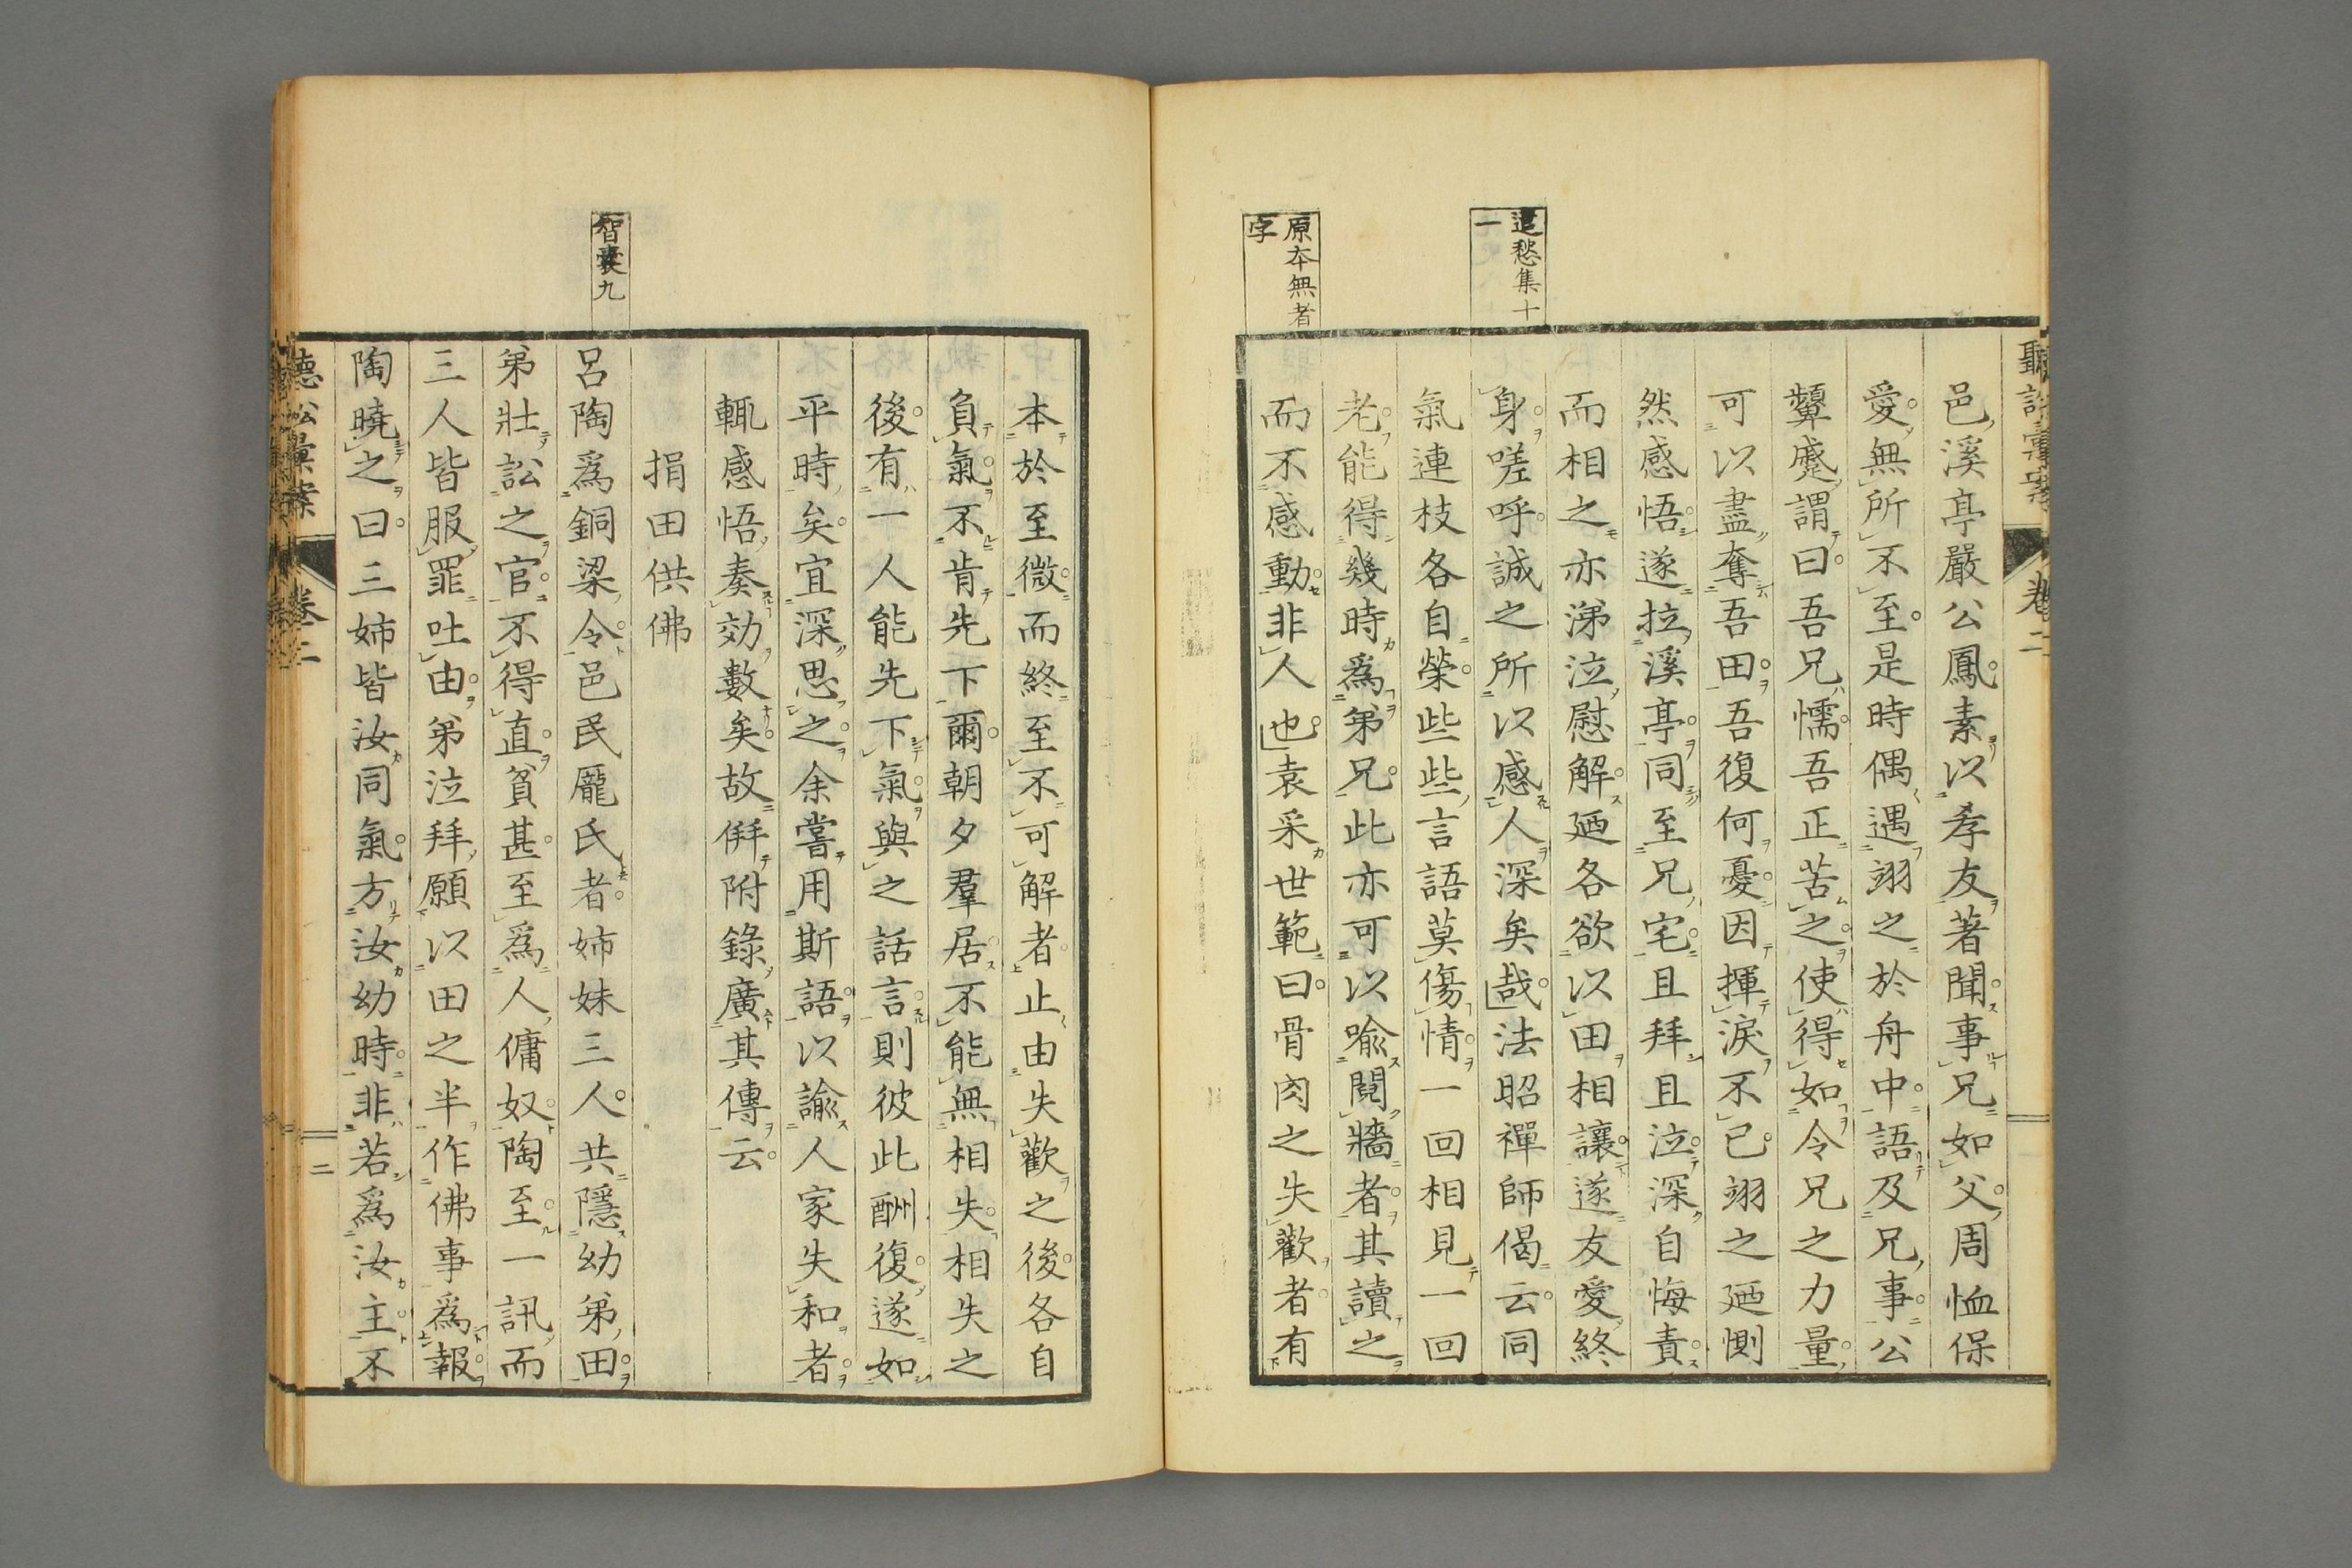 聽訟彙案 卷二
邑溪亭嚴公鳳素以孝友著聞事兄如父周恤保
愛無所不至是時偶遇翊之於舟中語及兄事公
顰蹙謂曰吾兄懦吾正苦之使得如令兄之力量
可以盡奪吾田吾復何憂因揮淚不已翊之廼惻
然感悟遂拉溪亭同至兄宅且拜且泣深自悔責
而相之亦涕泣慰解廼各欲以田相讓遂友愛終
遣愁集十一
身嗟呼誠之所以感人深矣哉法昭禪師偈云同
氣連枝各自榮些些言語莫傷情一回相見一回
老能得幾時爲弟兄此亦可以喩鬩牆者其讀之
原本無者字
而不感動非人也袁采世範曰骨肉之失歡者有
本於至微而終至不可解者止由失歡之後各自
負氣不肯先下爾朝夕羣居不能無相失相失之
後有一人能先下氣與之話言則彼此酬復遂如
平時矣宜深思之余嘗用斯語以諭人家失和者
輒感悟奏効數矣故倂附錄廣其傳云
捐田供佛
智囊九
呂陶爲銅梁令邑民龐氏者姉妹三人共隱幼弟田
弟壯訟之官不得直貧甚至爲人傭奴陶至一訊而
三人皆服罪吐由弟泣拜願以田之半作佛事爲報
陶曉之曰三姉皆汝同氣方汝幼時非若爲汝主不
聽訟彙案 卷二 二